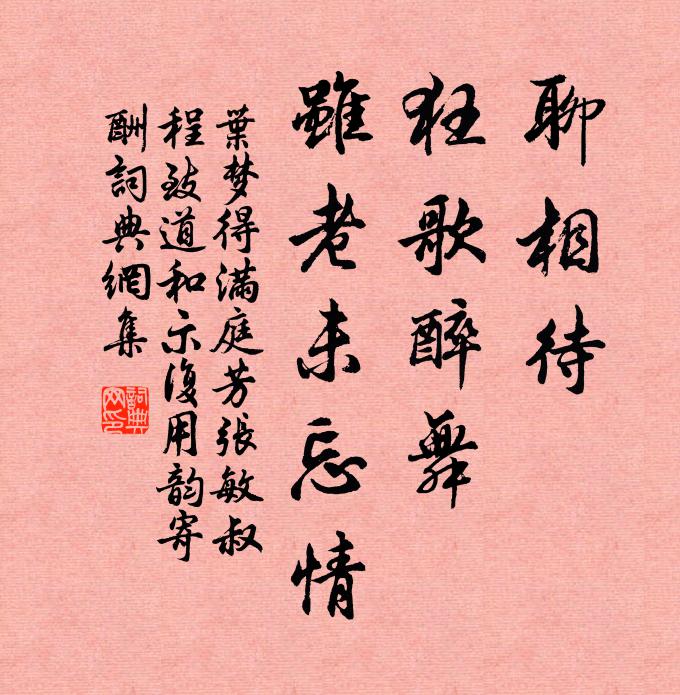 聊相待
狂歌醉舞
雖老未忘情
葉梦得滿庭芳張敏叔
程致道和示復用韵寄
酬詞典網集
詞典网印